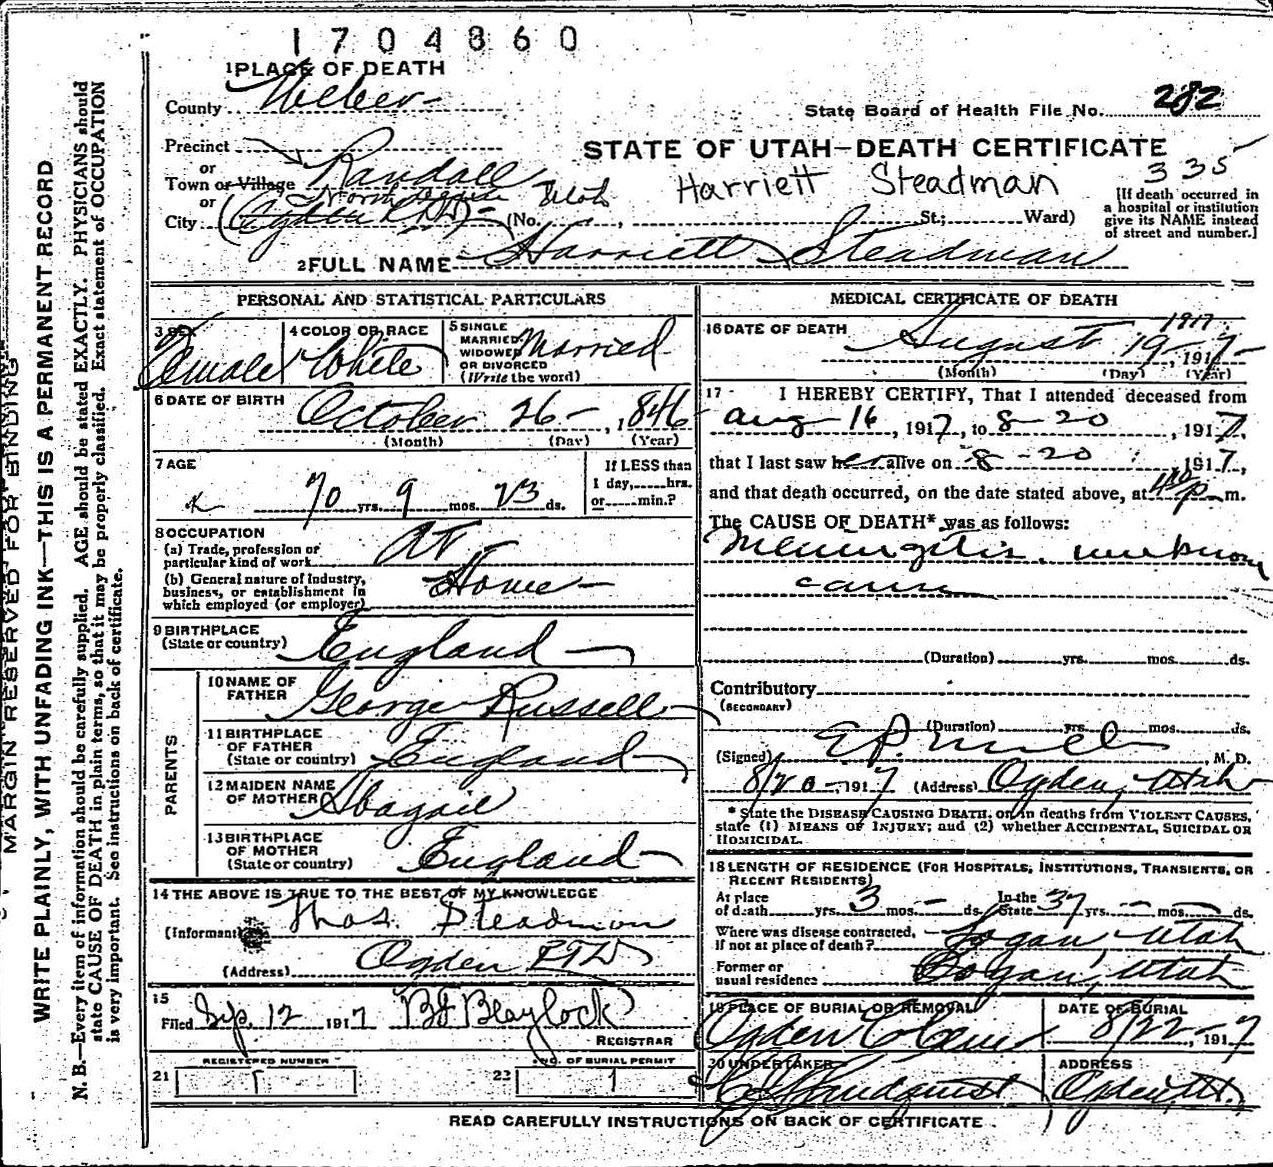 1704860
1 PLACE OF DEATH
County Weber
State Board of Health File No. 282
Precinct
or
Town or Village Randall
or
City (Ogden RFD) Utah (No. St.; Ward)
STATE OF UTAH—DEATH CERTIFICATE
335
Harriett Steadman
[If death occurred in
a hospital or institution
give its NAME instead
of street and number.]
2 FULL NAME Harriett Steadman
PERSONAL AND STATISTICAL PARTICULARS
3 SEX Female
4 COLOR OR RACE White
5 SINGLE
MARRIED
WIDOWED
OR DIVORCED
(Write the word) Married
6 DATE OF BIRTH October 26 , 1846
(Month) (Day) (Year)
7 AGE
70 yrs. 9 mos. 23 ds.
If LESS than
1 day, hrs.
or min.?
8 OCCUPATION
(a) Trade, profession or
particular kind of work At
(b) General nature of industry,
business, or establishment in
which employed (or employer) Home
9 BIRTHPLACE
(State or country) England
PARENTS
10 NAME OF
FATHER George Russell
11 BIRTHPLACE
OF FATHER
(State or country) England
12 MAIDEN NAME
OF MOTHER Abagail
13 BIRTHPLACE
OF MOTHER
(State or country) England
14 THE ABOVE IS TRUE TO THE BEST OF MY KNOWLEDGE
(Informant) Thos. Steadman
(Address) Ogden RFD
15
Filed Sep. 12 1917 Blaylock
REGISTRAR
REGISTERED NUMBER
21
NO. OF BURIAL PERMIT
22 1
MEDICAL CERTIFICATE OF DEATH
16 DATE OF DEATH 1917
August 19 , 1917
(Month) (Day) (Year)
17 I HEREBY CERTIFY, That I attended deceased from
Aug 16 , 1917, to 8-20 , 1917,
that I last saw her alive on 8-20 , 1917,
and that death occurred, on the date stated above, at p m.
The CAUSE OF DEATH* was as follows:
Meningitis, unknown
cause
(Duration) yrs. mos. ds.
Contributory
(SECONDARY)
(Duration) yrs. mos. ds.
(Signed) E.P. M. D.
8/20 , 1917 (Address) Ogden, Utah
* State the DISEASE CAUSING DEATH, or, in deaths from VIOLENT CAUSES,
state (1) MEANS OF INJURY; and (2) whether ACCIDENTAL, SUICIDAL OR
HOMICIDAL.
18 LENGTH OF RESIDENCE (FOR HOSPITALS, INSTITUTIONS, TRANSIENTS, OR
RECENT RESIDENTS)
At place
of death yrs. 3 mos. ds. In the
State 37 yrs. mos. ds.
Where was disease contracted,
if not at place of death? Logan, Utah
Former or
usual residence Logan, Utah
19 PLACE OF BURIAL OR REMOVAL
Ogden
DATE OF BURIAL
8/22 , 1917
20 UNDERTAKER
ADDRESS
Ogden, Ut.
READ CAREFULLY INSTRUCTIONS ON BACK OF CERTIFICATE
MARGIN RESERVED FOR BINDING
WRITE PLAINLY, WITH UNFADING INK—THIS IS A PERMANENT RECORD
N. B.—Every item of information should be carefully supplied. AGE should be stated EXACTLY. PHYSICIANS should
state CAUSE OF DEATH in plain terms, so that it may be properly classified. Exact statement of OCCUPATION
is very important. See instructions on back of certificate.